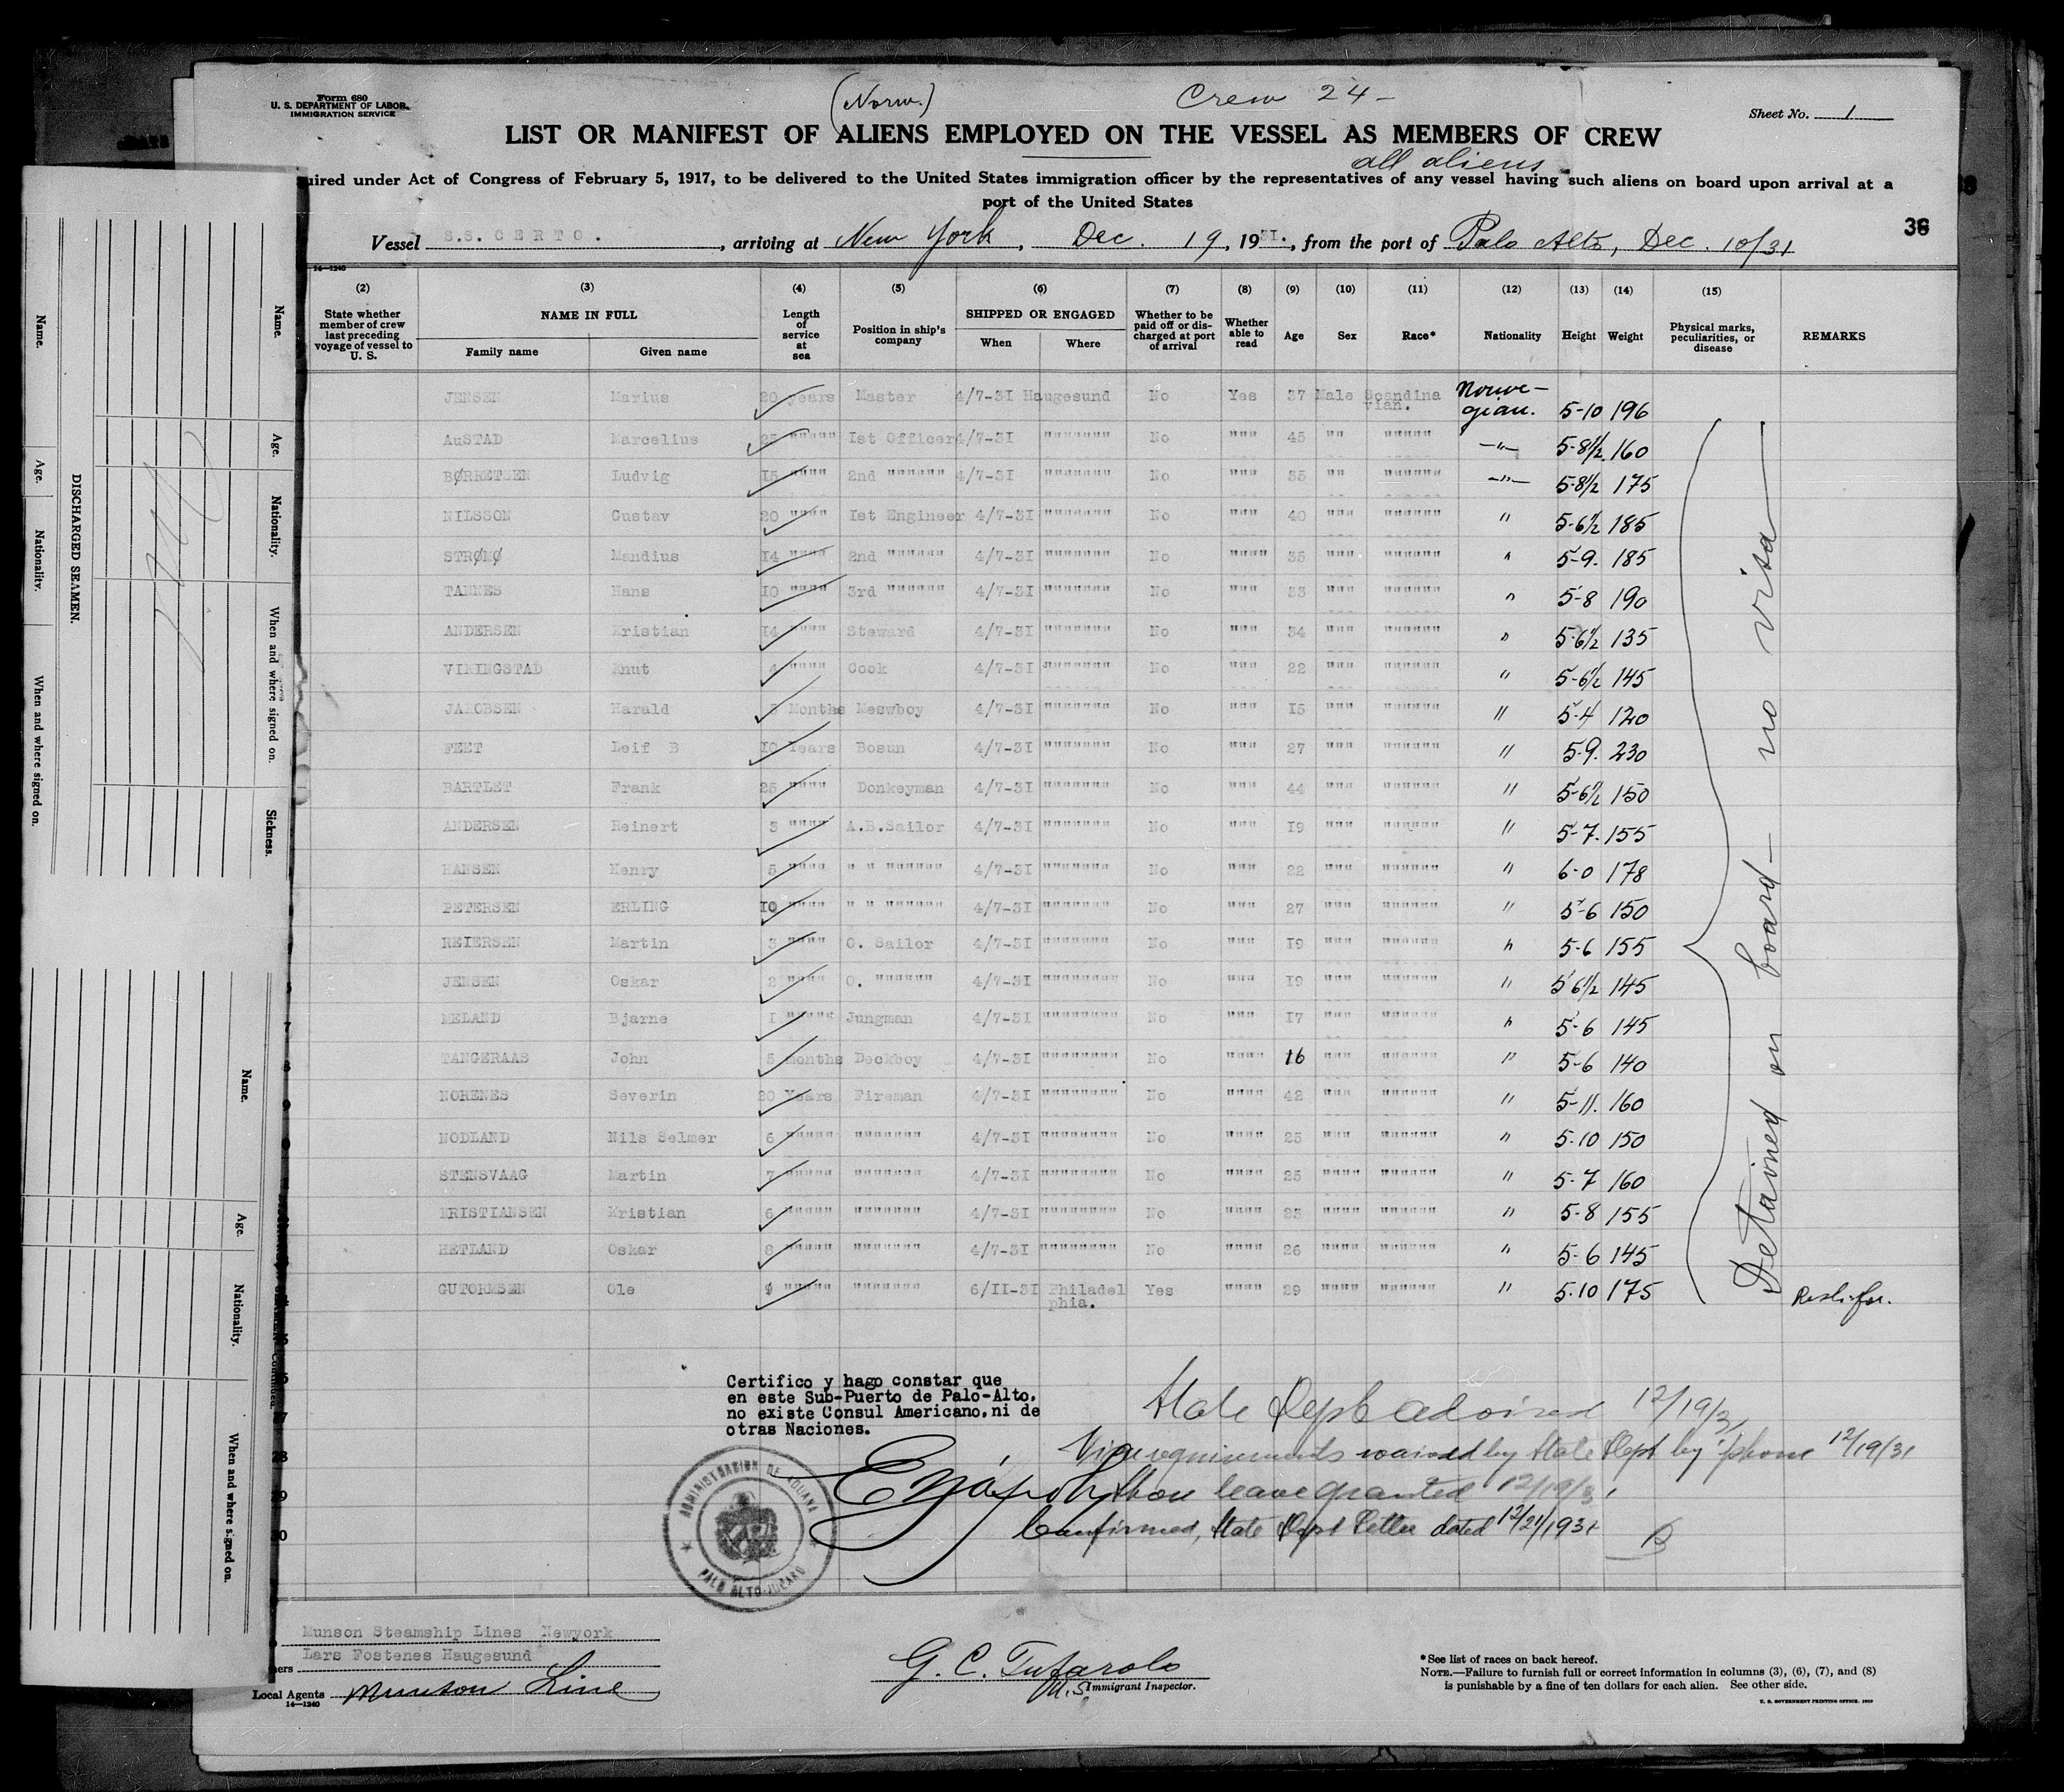 Form 680
U. S. DEPARTMENT OF LABOR
IMMIGRATION SERVICE
(Norw.)
Crew 24 -
Sheet No. 1
LIST OR MANIFEST OF ALIENS EMPLOYED ON THE VESSEL AS MEMBERS OF CREW
all aliens
uired under Act of Congress of February 5, 1917, to be delivered to the United States immigration officer by the representatives of any vessel having such aliens on board upon arrival at a
port of the United States
36
Vessel S.S. CERTO. , arriving at New York , Dec. 19 , 1931. , from the port of Palo Alto, Dec. 10/31
14—1240
(2) (3) (4) (5) (6) (7) (8) (9) (10) (11) (12) (13) (14) (15)
State whether member of crew last preceding voyage of vessel to U. S.
NAME IN FULL
Family name Given name
Length of service at sea
Position in ship's company
SHIPPED OR ENGAGED
When Where
Whether to be paid off or discharged at port of arrival
Whether able to read
Age Sex Race* Nationality Height Weight
Physical marks, peculiarities, or disease
REMARKS
JENSEN Marius 20 years Master 4/7-31 Haugesund No Yes 37 Male Scandinavian. Norwegian. 5-10 196
AuSTAD Marcelius 25 """" Ist Officer 4/7-31 """"""" No """ 45 "" """"" -"- 5-8½ 160
BØRRETZEN Ludvig 15 """" 2nd """""" 4/7-31 """"""" No """ 35 "" """""" -"- 5-8½ 175
NILSSON Gustav 20 """" Ist Engineer 4/7-31 """"""" No """ 40 """ """""" " 5-6½ 185
STRØMØ Mandius 14 """" 2nd """""" 4/7-31 """"""" No """" 35 """ """""" " 5-9. 185
TANNES Hans 10 """" 3rd """""" 4/7-31 """"""" No """ 33 """ """""" " 5-8 190
ANDERSEN Kristian 14 """" Steward 4/7-31 """"""" No """ 34 """ """""" " 5-6½ 135
VIKINGSTAD Knut 4 """" Cook 4/7-31 """"""" No """ 22 """ """""" " 5-6½ 145
JAKOBSEN Harald 5 Months Meswboy 4/7-31 """"""" No """ 15 """ """""" " 5-4 120
FEET Leif B 10 Years Bosun 4/7-31 """"""" No """ 27 """ """""" " 5-9. 230
BARTLET Frank 25 """" Donkeyman 4/7-31 """"""" No """ 44 """ """""" " 5-6½ 150
ANDERSEN Reinert 3 """" A.B.Sailor 4/7-31 """"""" No """ 19 """ """""" " 5-7. 155
HANSEN Henry 5 """" " " """""" 4/7-31 """"""" No """ 22 """ """""" " 6-0 178
PETERSEN ERLING 10 """" " " """""" 4/7-31 """"""" No """ 27 """ """""" " 5-6 150
REIERSEN Martin 3 """" O. Sailor 4/7-31 """"""" No """ 19 """ """""" " 5-6 155
JENSEN Oskar 2 """" O. """""" 4/7-31 """""""" No """ 19 """ """""" " 5 6½ 145
MELAND Bjarne 1 """"" Jungman 4/7-31 """""""" No """ 17 """ """""" " 5-6 145
TANGERAAS John 5 months Deckboy 4/7-31 """""""" No """" 16 """ """""" " 5-6 140
NORENES Severin 20 Years Fireman 4/7-31 """""""" No """" 42 """ """""" " 5-11. 160
NODLAND Nils Selmer 6 """"" """"""" 4/7-31 """""""" No """" 25 """ """""" " 5-10 150
STENSVAAG Martin 7 """"" """"""" 4/7-31 """""""" No """" 25 """" """""" " 5-7 160
KRISTIANSEN Kristian 6 """"" """"""" 4/7-31 """""""" No """" 23 """" """""" " 5-8 155
HETLAND Oskar 8 """"" """"""" 4/7-31 """""""" No """" 26 """" """""" " 5-6 145
GUTORMSEN Ole 9 """"" """"""" 6/II-31 Philadelphia. Yes """" 29 """" """""" " 5.10 175
Detained on board — no visa
Certifico y hago constar que
en este Sub-Puerto de Palo-Alto,
no existe Consul Americano,ni de
otras Naciones.
State Dept advised 12/19/31
Visa requirements waived by State Dept by 'phone 12/19/31
Shore leave granted 12/19/31
Confirmed, State Dept Letter dated 12/21/1931
ADMINISTRACION DE ADUANA
PALO ALTO-JUCARO
Munson Steamship Lines Newyork
Lars Fostenes Haugesund
ners
Local Agents Munson Line
14—1240
G. C. Tufarolo
U.S. Immigrant Inspector.
*See list of races on back hereof.
NOTE.—Failure to furnish full or correct information in columns (3), (6), (7), and (8)
is punishable by a fine of ten dollars for each alien. See other side.
U. S. GOVERNMENT PRINTING OFFICE
DISCHARGED SEAMEN.
Name. Age. Nationality. When and where signed on.
Name. Age. Nationality. When and where signed on. Sickness.
Name. Age. Nationality. When and where signed on.